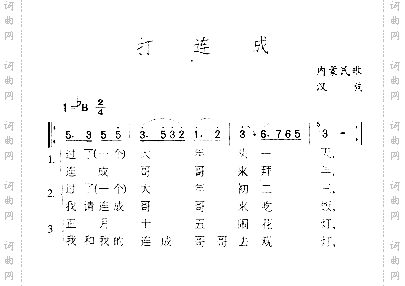 打 连 成
内蒙民歌
汉 词
1=♭B 2/4
5. 3 5 5 | 3. 5 3 2 | 1. 2 | 3 6. 7 6 5 | 5 3 —
1. 过了(一个) 大 年 头 一 天,
连 成 哥 哥 来 拜 年,
2. 过了(一个) 大 年 初 二 三,
我请连成 哥 哥 来 吃 饭,
3 正 月 十 五 闹 花 灯,
我 和 我的 连 成 哥 哥 去 观 灯,
词曲网
词曲网
词曲网
词曲网
词曲网
词曲网